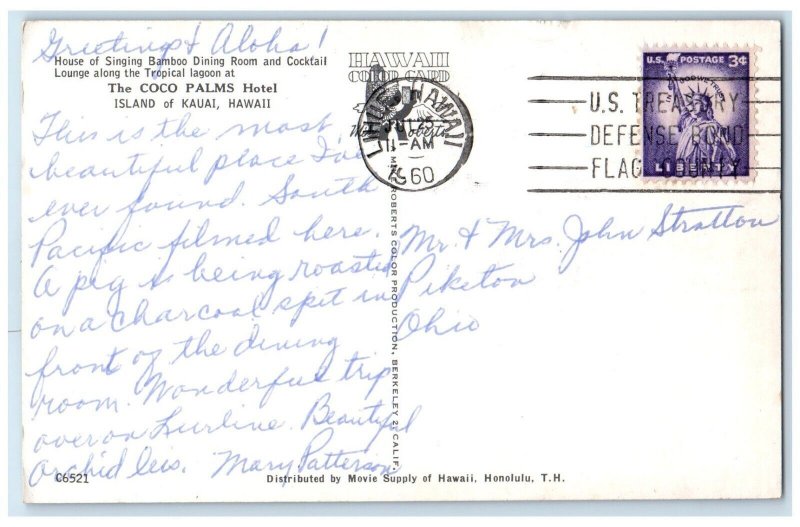 Greetings & Aloha!
House of Singing Bamboo Dining Room and Cocktail
Lounge along the Tropical lagoon at
The COCO PALMS Hotel
ISLAND of KAUAI, HAWAII
This is the most
beautiful place I've
ever found. South
Pacific filmed here.
A pig is being roasted
on a charcoal spit in
front of the dining
room. Wonderful trip
over on Lurline. Beautiful
orchid leis. Mary Patterson
C6521
Distributed by Movie Supply of Hawaii, Honolulu, T.H.
HAWAII
COLOR CARD
Mike Roberts
LIHUE, HAWAII
JUL 25
11-AM
1960
MIKE ROBERTS COLOR PRODUCTION, BERKELEY 2, CALIF.
U.S. POSTAGE 3¢
IN GOD WE TRUST
LIBERTY
U.S. TREASURY
DEFENSE BOND
FLAG COUNTY
Mr. & Mrs. John Stratton
Piketon
Ohio